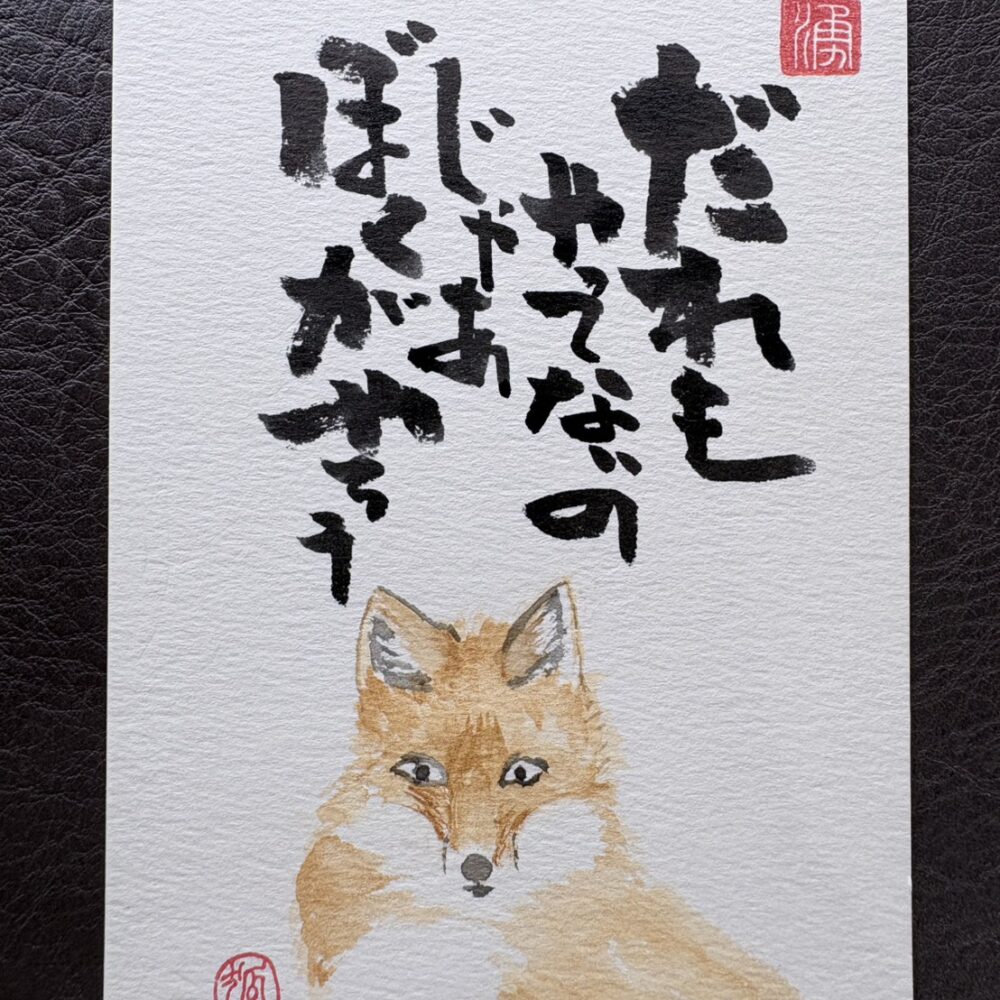 湧
だれも
やってないの
じゃあ
ぼくが
やろう